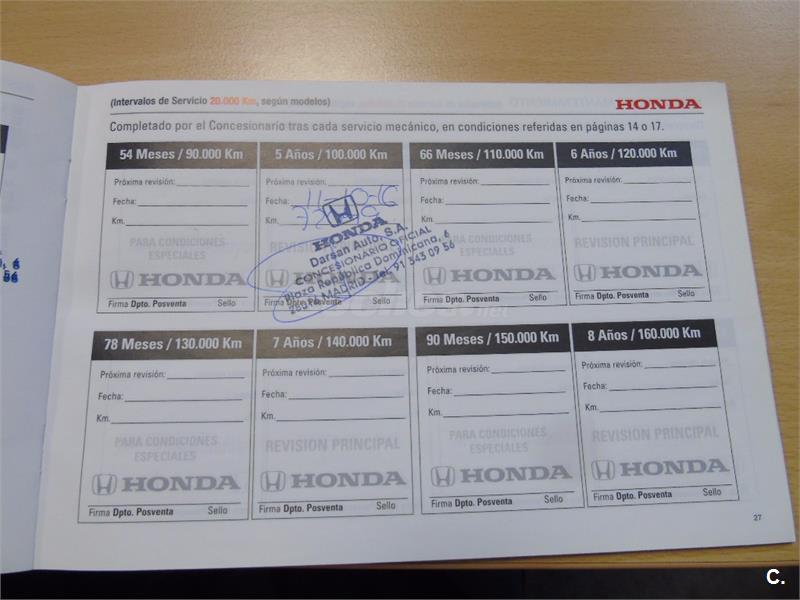 (Intervalos de Servicio 20.000 Km, según modelos)
HONDA
Completado por el Concesionario tras cada servicio mecánico, en condiciones referidas en páginas 14 o 17.
54 Meses / 90.000 Km
Próxima revisión:
Fecha:
Km.
PARA CONDICIONES
ESPECIALES
HONDA
Firma Dpto. Posventa Sello
5 Años / 100.000 Km
Próxima revisión:
Fecha: 11-10-16
Km.
HONDA
Darsan Auto, S.A.
CONCESIONARIO OFICIAL
Plaza República Dominicana, 6
28016 MADRID Tel. 91 343 09 56
REVISION
HONDA
Firma Dpto. Posventa Sello
66 Meses / 110.000 Km
Próxima revisión:
Fecha:
Km.
PARA CONDICIONES
ESPECIALES
HONDA
Firma Dpto. Posventa Sello
6 Años / 120.000 Km
Próxima revisión:
Fecha:
Km.
REVISION PRINCIPAL
HONDA
Firma Dpto. Posventa Sello
78 Meses / 130.000 Km
Próxima revisión:
Fecha:
Km.
PARA CONDICIONES
ESPECIALES
HONDA
Firma Dpto. Posventa Sello
7 Años / 140.000 Km
Próxima revisión:
Fecha:
Km.
REVISION PRINCIPAL
HONDA
Firma Dpto. Posventa Sello
90 Meses / 150.000 Km
Próxima revisión:
Fecha:
Km.
PARA CONDICIONES
ESPECIALES
HONDA
Firma Dpto. Posventa Sello
8 Años / 160.000 Km
Próxima revisión:
Fecha:
Km.
REVISION PRINCIPAL
HONDA
Firma Dpto. Posventa Sello
27
C.